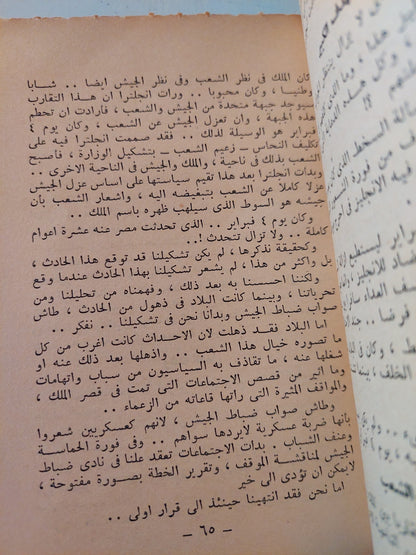 كان الملك فى نظر الشعب وفى نظر الجيش ايضا .. شابا
وطنيا ، وكان محبوبا .. ورات انجلترا ان هذا التقارب
سيوجد جبهة متحدة من الجيش والشعب ، فارادت ان تحطم
هذه الجبهة ، وان تعزل الجيش عن الشعب ، وكان يوم ٤
فبراير هو الوسيلة لذلك .. فقد صممت انجلترا فيه على
تكليف النحاس - زعيم الشعب - بتشكيل الوزارة ، فاصبح
الشعب بذلك فى ناحية ، والملك والجيش فى الناحية الاخرى ..
وبدات انجلترا بعد هذا تقيم سياستها على اساس عزل الجيش
عزلا كاملا عن الشعب بتبغيضه اليه ، واشعار الشعب بأن
جيشه هو السوط الذى سيلهب ظهره باسم الملك ..
وكان يوم ٤ فبراير .. الذى تحدثت مصر عنه عشرة اعوام
كاملة .. ولا تزال تتحدث !..
وكحقيقة نذكرها ، لم يكن تشكيلنا قد توقع هذا الحادث ،
بل واكثر من هذا ، لم يشعر تشكيلنا بهذا الحادث عندما وقع
ولكننا احسسنا به بعد ذلك ، وفهمناه من تحليلنا ومن
تحرياتنا ، وبينما كانت البلاد فى ذهول من الحادث ، طاش
صواب ضباط الجيش وبدأنا نحن فى تشكيلنا .. نفكر ..
اما البلاد فقد ذهلت لان الاحداث كانت اغرب من كل
ما تصوره خيال هذا الشعب .. واذهلها بعد ذلك عنه او
شغلها عنه ، ما تقاذف به السياسيون من سباب واتهامات
وما اثير من قصص الاجتماعات التى تمت فى قصر الملك ،
والمواقف المثيرة التى راتها قاعاته من الزعماء ..
وطاش صواب ضباط الجيش ، لانهم كعسكريين شعروا
بأنها ضربة عسكرية لايردها سواهم .. وفى فورة الحماسة
وعنف الشباب . بدات الاجتماعات تعقد علنا فى نادى ضباط
الجيش لمناقشة الموقف ، وتقرير الخطة بصورة مفتوحة ،
لايمكن ان تؤدى الى خير
اما نحن فقد انتهينا حينئذ الى قرار اولى ..
- ٦٥ -